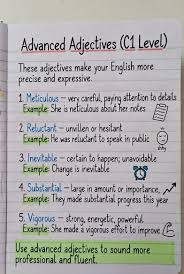 Advanced Adjectives (C1 Level)
These adjectives make your English more
precise and expressive.
1. Meticulous – very careful, paying attention to details
Example: She is meticulous about her notes
2. Reluctant – unwillen or hesitant
Example: He was reluctant to speak in public
3. Inevitable – certain to happen; unavoidable
Example: Change is inevitable
4. Substantial – large in amount or importance,
Example: They made substantial progress this year
5. Vigorous – strong, energetic, powerful
Example: She made a vigorous effort to improve
Use advanced adjectives to sound more
professional and fluent.